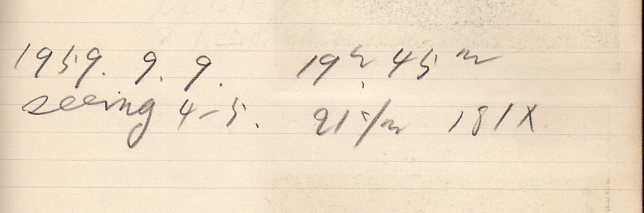 1959. 9. 9. 19h 45m
seeing 4-5. 21c/m 181X